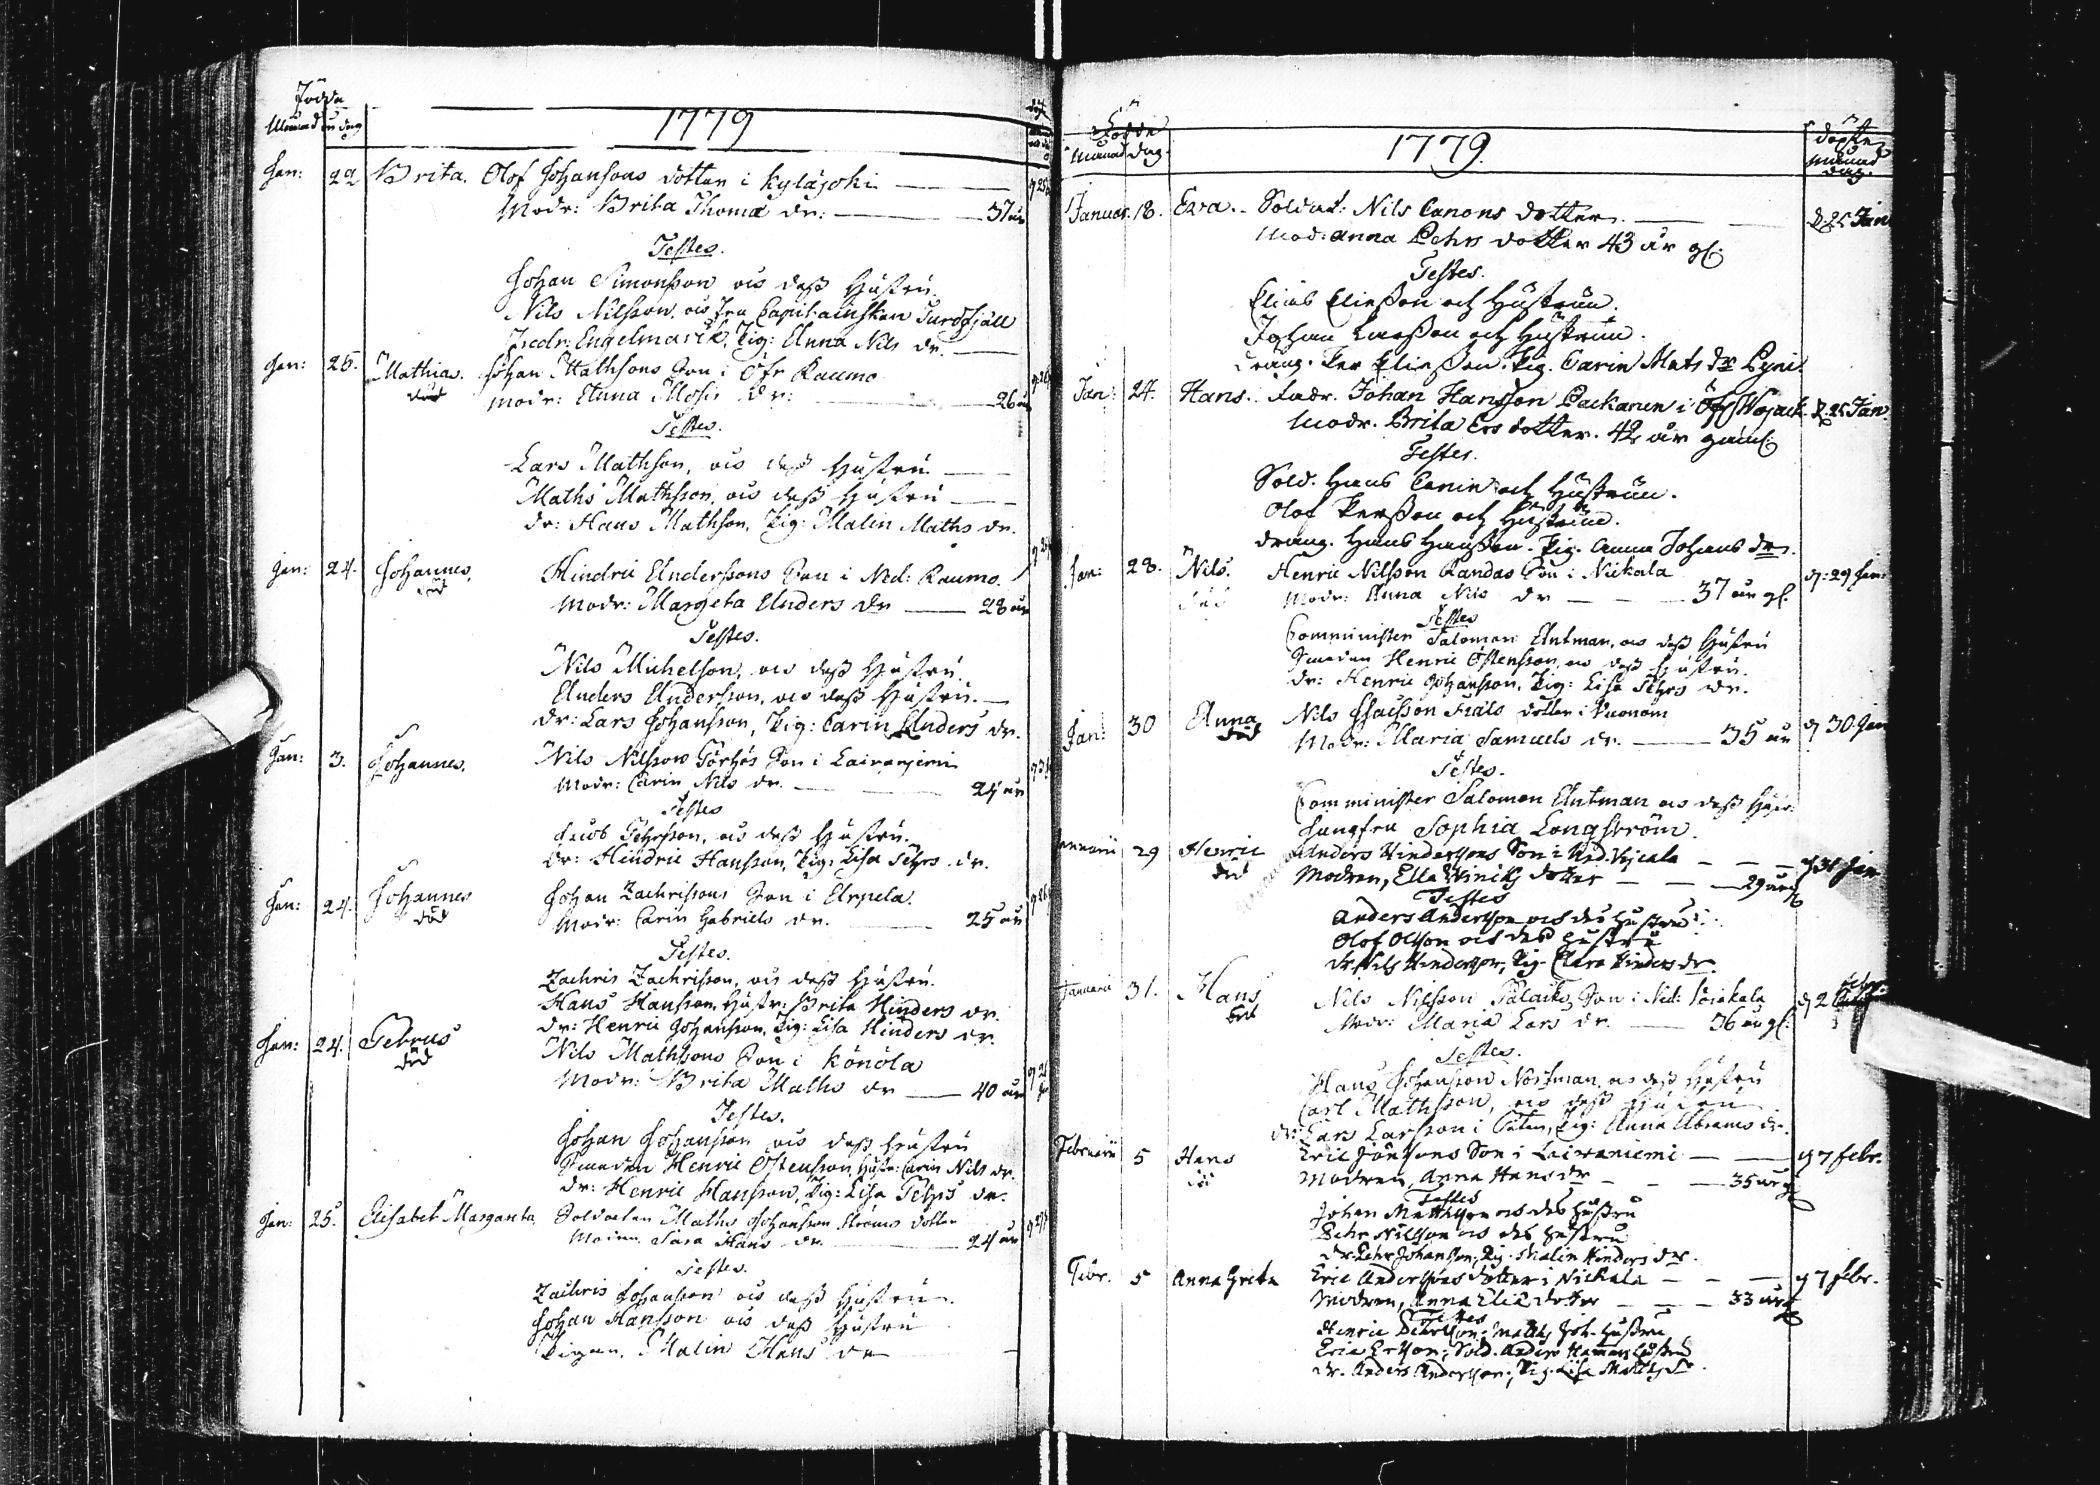 Födde
Månad och dag 1779
Jan: 22 Brita. Olof Johansons dotter i Kyläjoki
Modr: Brita Thomæ dr: 37 år
Testes.
Johan Simonsson och dess Hustru.
Nils Nilsson, och Fru Capitainskan Turdfjäll
Fredr: Engelmarck, Pig: Anna Nils dr.
Jan: 25. Mathias. Johan Mathsons Son i Öfr Raumo
död Modr: Anna Mosis dr: 26 år
Testes.
Lars Mathson, och dess Hustru
Maths Mathsson, och dess Hustru
dr: Hans Mathson, Pig: Malin Maths dr.
Jan: 24. Johannes, Hindric Anderssons Son i Ned: Raumo.
död Modr: Margeta Anders dr 28 år
Testes.
Nils Michelson, och dess Hustru.
Anders Andersson, och dess Hustru.
dr: Lars Johansson, Pig: Carin Anders dr.
Jan: 3. Johannes. Nils Nilssons Son i Laivaniemi
Modr: Carin Nils dr. 24 år
Testes
Jacob Pehrsson, och dess Hustru.
dr: Hindric Hansson, Pig: Lisa Pehrs dr.
Jan: 24. Johannes Johan Zachrissons Son i Arpela.
död Modr: Carin Gabriels dr. 25 år
Testes.
Zachris Zachrisson, och dess Hustru.
Hans Hansson, Hustr: Brita Hinders dr.
dr: Henric Johansson, Pig: Lisa Hinders dr.
Jan: 24. Petrus Nils Mathsons Son i Könölä
död Modr: Brita Maths dr 40 år
Testes.
Johan Johansson och dess Hustru
Smeden Henric Östensson, Hustr: Carin Nils dr.
dr: Henric Hansson, Pig: Lisa Pehrs dr.
Jan: 25. Elisabet Margareta, Soldaten Maths Johansson Ströms dotter
Modren Sara Hans dr. 24 år
Testes.
Zachris Johansson och dess Hustru.
Johan Hansson och dess Hustru
Pigan. Malin Hans dr
Födde
Månad dag. 1779. döpte
månad
dag.
Januar. 18. Eva. Soldat: Nils Canons dotter. d 25 Jan
Mod: Anna Pehrs dotter 43 år gl:
Testes.
Elias Eliesson och Hustrun.
Johan Larsson och Hustrun.
dräng. Per Eliesson. Pig. Carin Mats dr Pyni.
Jan: 24. Hans. Fadr. Johan Hansson Packanen i Öfr Wojack. d. 25 Jan
Modr. Brita Ers dotter. 42 år gaml:
Testes.
Sold. Hans Canin och Hustrun.
Olof Persson och Hustrun.
dräng. Hans Hansson. Pig. Anna Johans dr.
Jan: 28. Nils. Henric Nilsson Randas Son i Nickala d: 29 Jan:
död Modr: Anna Nils dr 37 år gl.
Testes
Comminister Salomon Antman, och dess Hustru
Smeden Henric Östensson, och dess Hustru.
dr: Henric Johansson, Pig: Lisa Pehrs dr.
Jan: 30 Anna Nils Isacsson Fiäls dotter i Vuonom d 30 Jan
död Modr: Maria Samuels dr. 35 år
Testes.
Comminister Salomon Antman och dess Hustr:
Jungfru Sophia Longström.
Januarii 29 Henric Anders Hinderssons Son i Ned. Vojcala d 31 Jan
död Modren, Ella Hinriks dotter 29 år gl
Testes
Anders Andersson och dess Hustru
Olof Olsson och dess Hustru
dr. Nils Hindersson, Pig. Clara Hinders dr.
Januarii 31. Hans Nils Nilsson Son i Ned: Vojakala d 2 Febr.
död Modr: Maria Lars dr. 36 år gl.
Testes.
Hans Johansson Nordman, och dess Hustru
Carl Mathsson, och dess Hustru
dr: Lars Larsson i Säten, Pig: Anna Abrams dr.
Februarii 5 Hans Eric Jönssons Son i Laivaniemi d 7 febr.
död Modren, Anna Hans dr 35 år gl
Testes
Johan Mathsson och dess Hustru
Pehr Nilsson och dess Hustru
dr. Pehr Johansson, Pig. Malin Hinders dr.
Febr. 5 Anna Greta Eric Anderssons dotter i Nickala d 7 febr.
Modren, Anna Eliæ dotter 33 år gl
Testes
Henric Pehrsson, Matts Joh. Hustru
Eric Ersson, Sold. Anders Hammars Hustru
dr. Anders Andersson, Pig. Lisa Matts dr